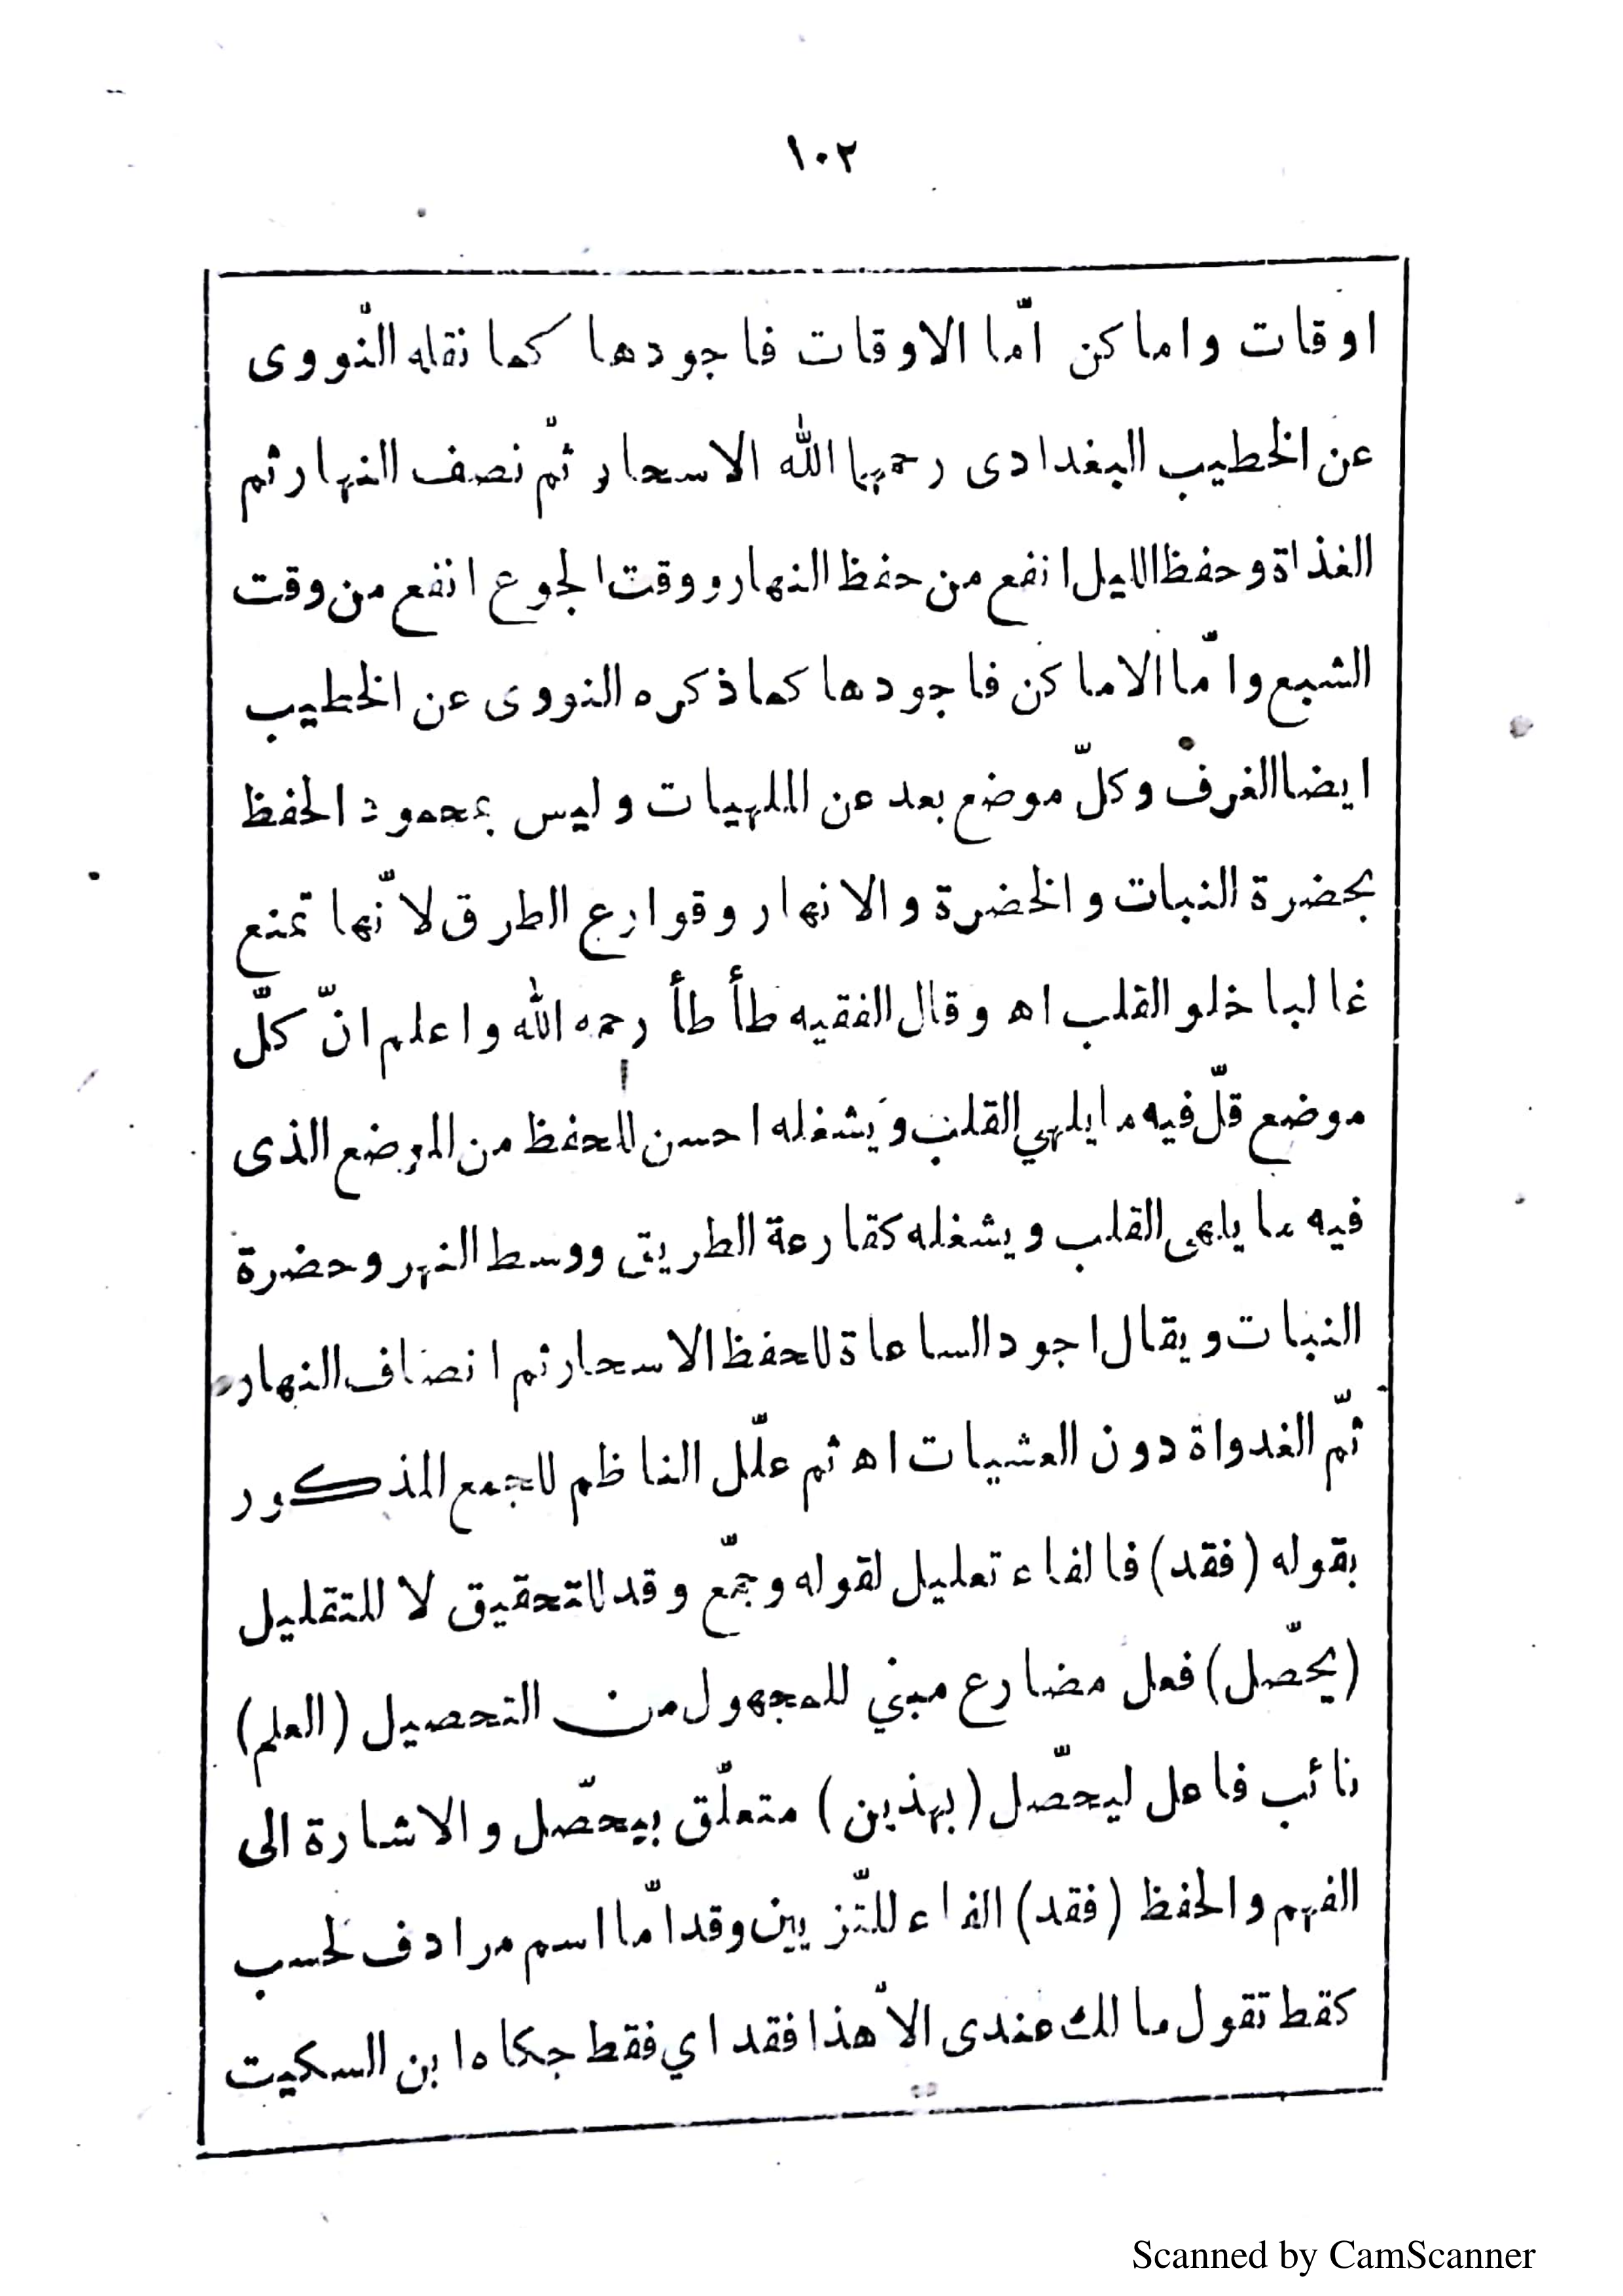 ١٠٢
اوقات واماكن امّا الاوقات فاجودها كما نقله النّووى
عن الخطيب البغدادى رحمهما الله الاسحار ثمّ نصف النهار ثم
الغذاة وحفظ الليل انفع من حفظ النهار ووقت الجوع انفع من وقت
الشبع وامّا الاماكن فاجودها كما ذكره النووى عن الخطيب
ايضا الغرف وكلّ موضع بعد عن الملهيات وليس بمحمود الحفظ
بحضرة النبات والخضرة والانهار وقوارع الطرق لانّها تمنع
غالبا خلو القلب اه وقال الفقيه طأطأ رحمه الله واعلم انّ كلّ
موضع قلّ فيه ما يلهي القلب ويشغله احسن للحفظ من الموضع الذى
فيه ما يلهى القلب ويشغله كقارعة الطريق ووسط النهر وحضرة
النبات ويقال اجود الساعاة للحفظ الاسحار ثم انصاف النهار
ثمّ الغدواة دون العشيات اه ثم علّل الناظم للجمع المذكور
بقوله (فقد) فالفاء تعليل لقوله وجمّع وقد للتحقيق لا للتقليل
(يحصّل) فعل مضارع مبني للمجهول من التحصيل (العلم)
نائب فاعل ليحصّل (بهذين) متعلّق بيحصّل والاشارة الى
الفهم والحفظ (فقد) الفاء للتّزيين وقد امّا اسم مرادف لحسب
كقط تقول مالك عندى الاّ هذا فقد اي فقط حكاه ابن السكيت
Scanned by CamScanner